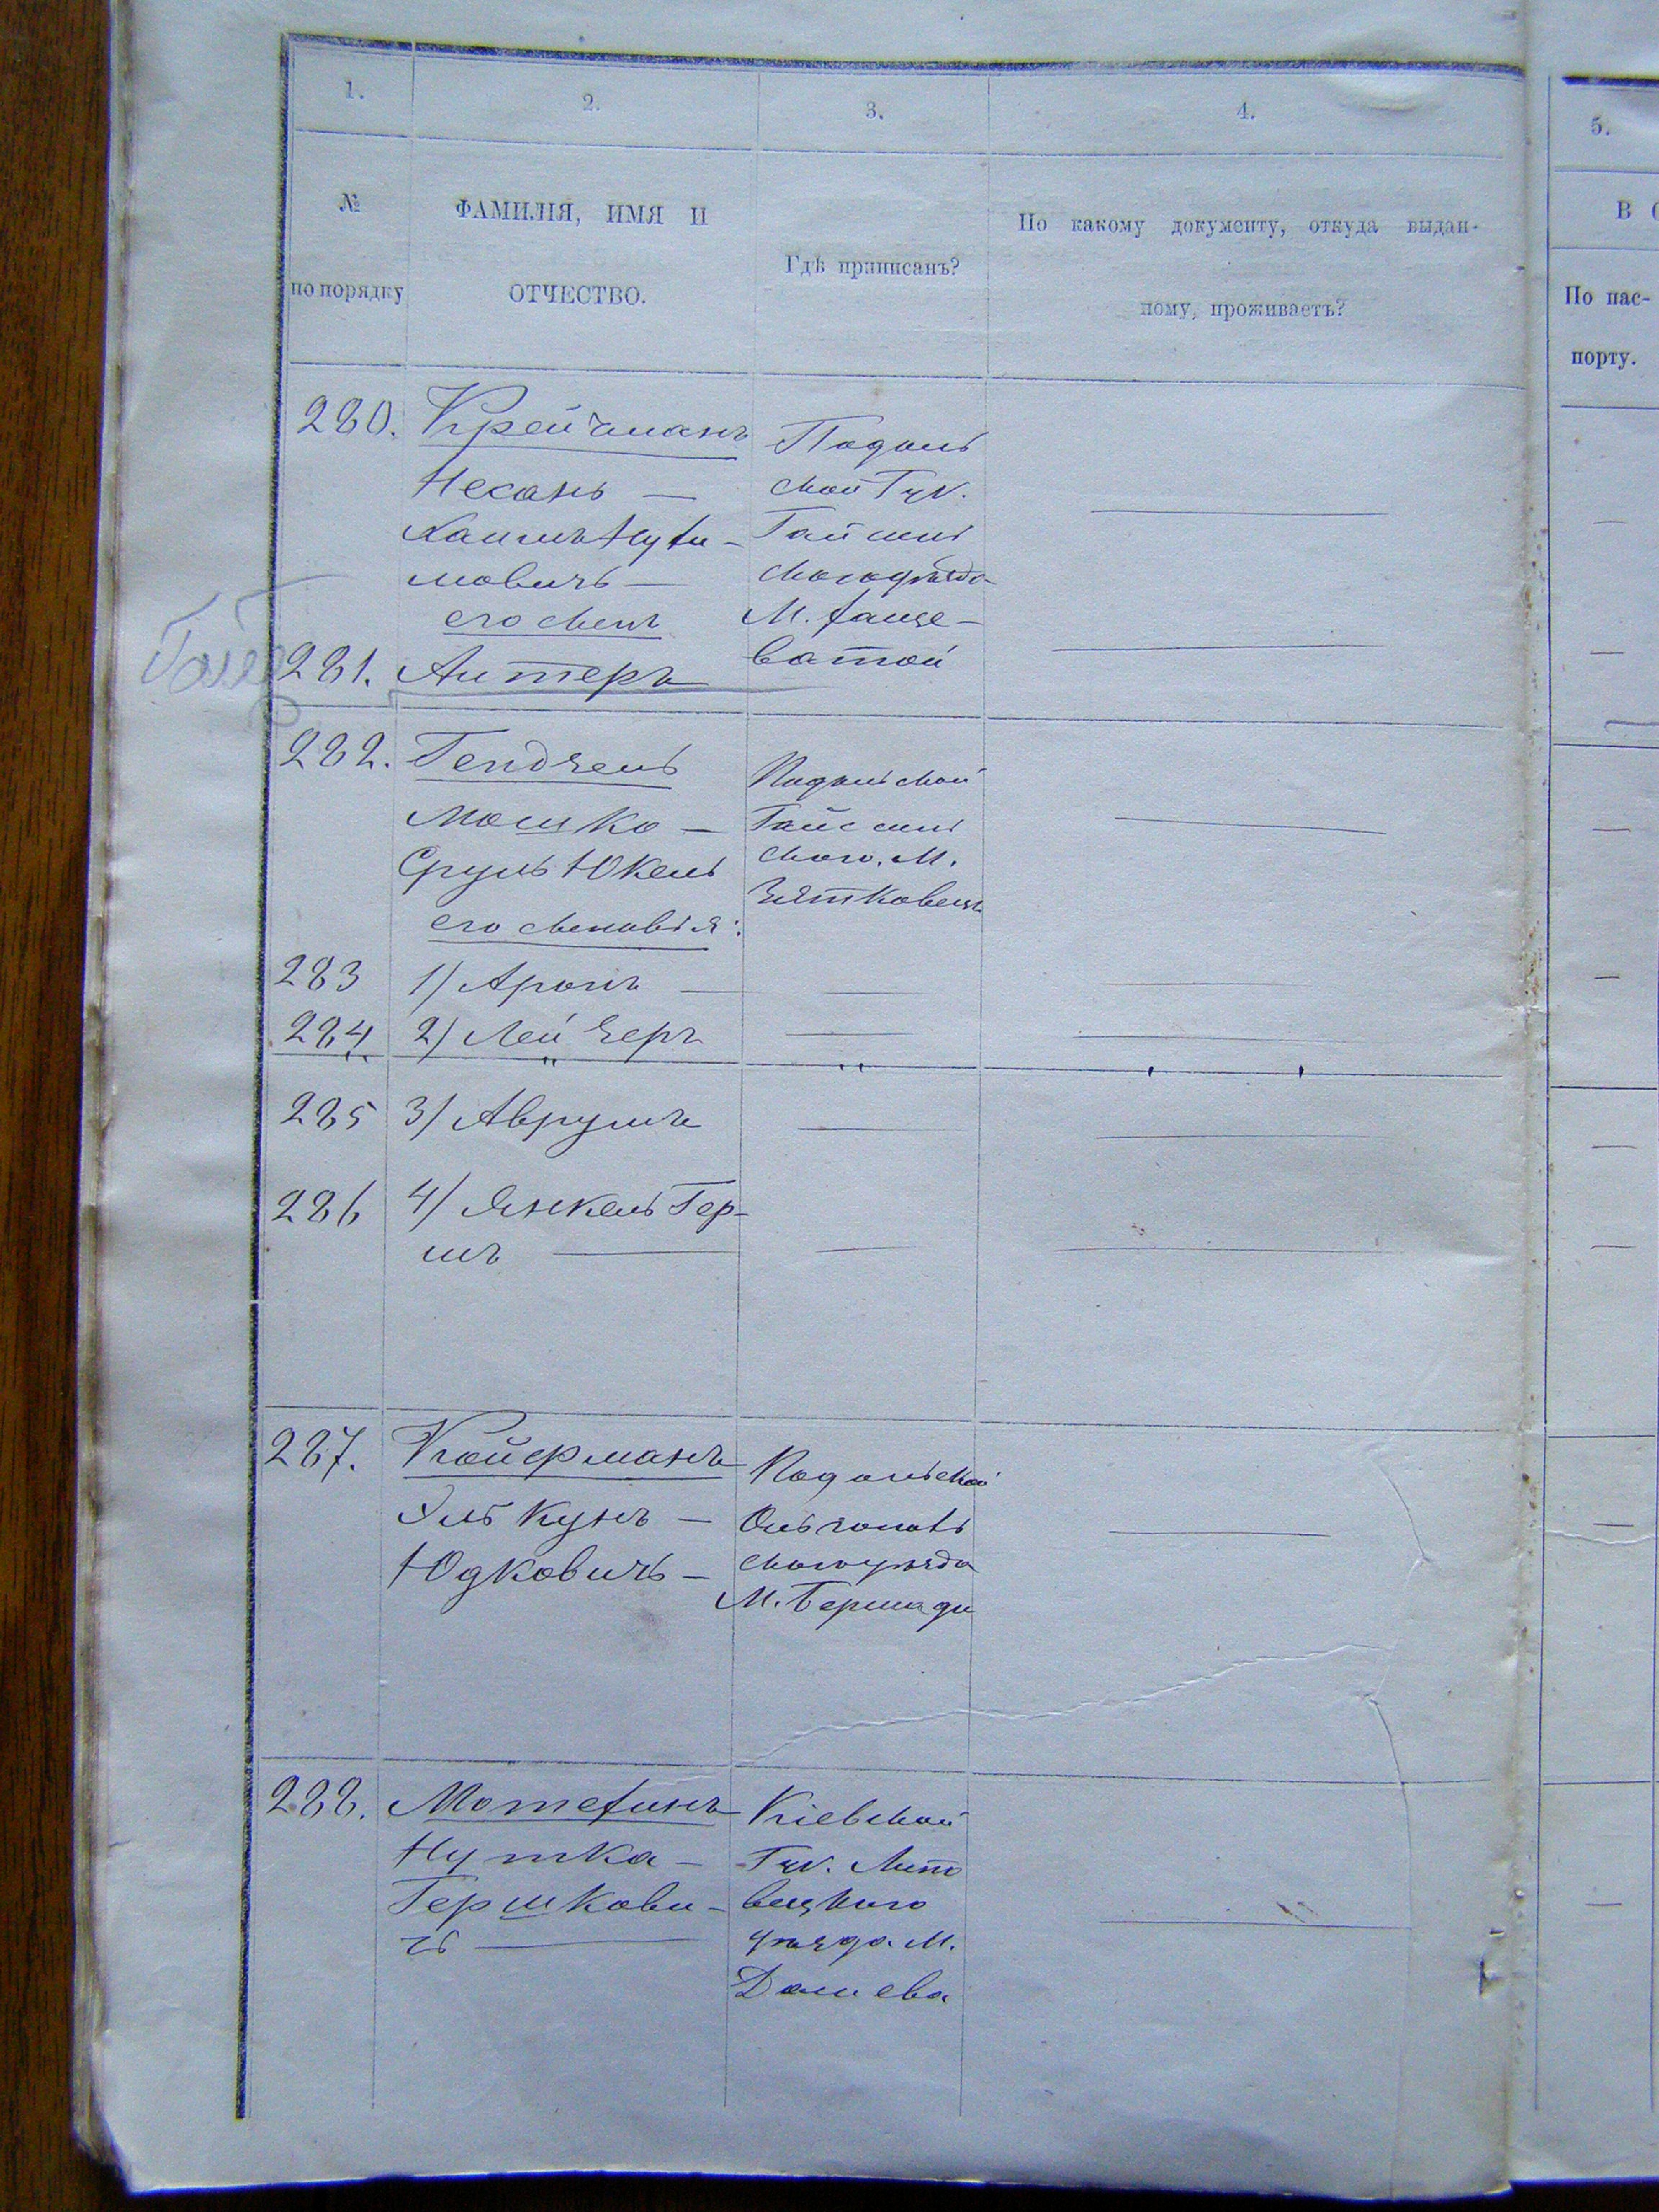 1.
2.
3.
4.
5.
№
по порядку
ФАМИЛІЯ, ИМЯ И
ОТЧЕСТВО.
Гдѣ приписанъ?
По какому документу, откуда выдан-
ному, проживаетъ?
В
По пас-
порту.
280. Крейчманъ
Несань —
Хаимъ Нухи-
мовичъ —
его сынъ
Подоль
ской Губ.
Гайсин
скаго уѣзда
М. Хаще-
ватой
281. Антеръ
282. Гендзель
Мошко —
Сруль Юкель
его сыновья:
Подольской
Гайсин
скаго, М.
Зятковець
283 1) Аронъ —
284 2) Лейзеръ
285 3) Аврумъ
286 4) Янкель Гер-
шъ —
287. Койфманъ
Эль Кунъ —
Юдковичъ —
Подольской
Ольгополь
скаго уѣзда
М. Бершади
288. Мотехинъ
Нутка —
Гершкови-
чъ —
Кіевской
Губ. Липо
вецкаго
уѣзда М.
Дашева